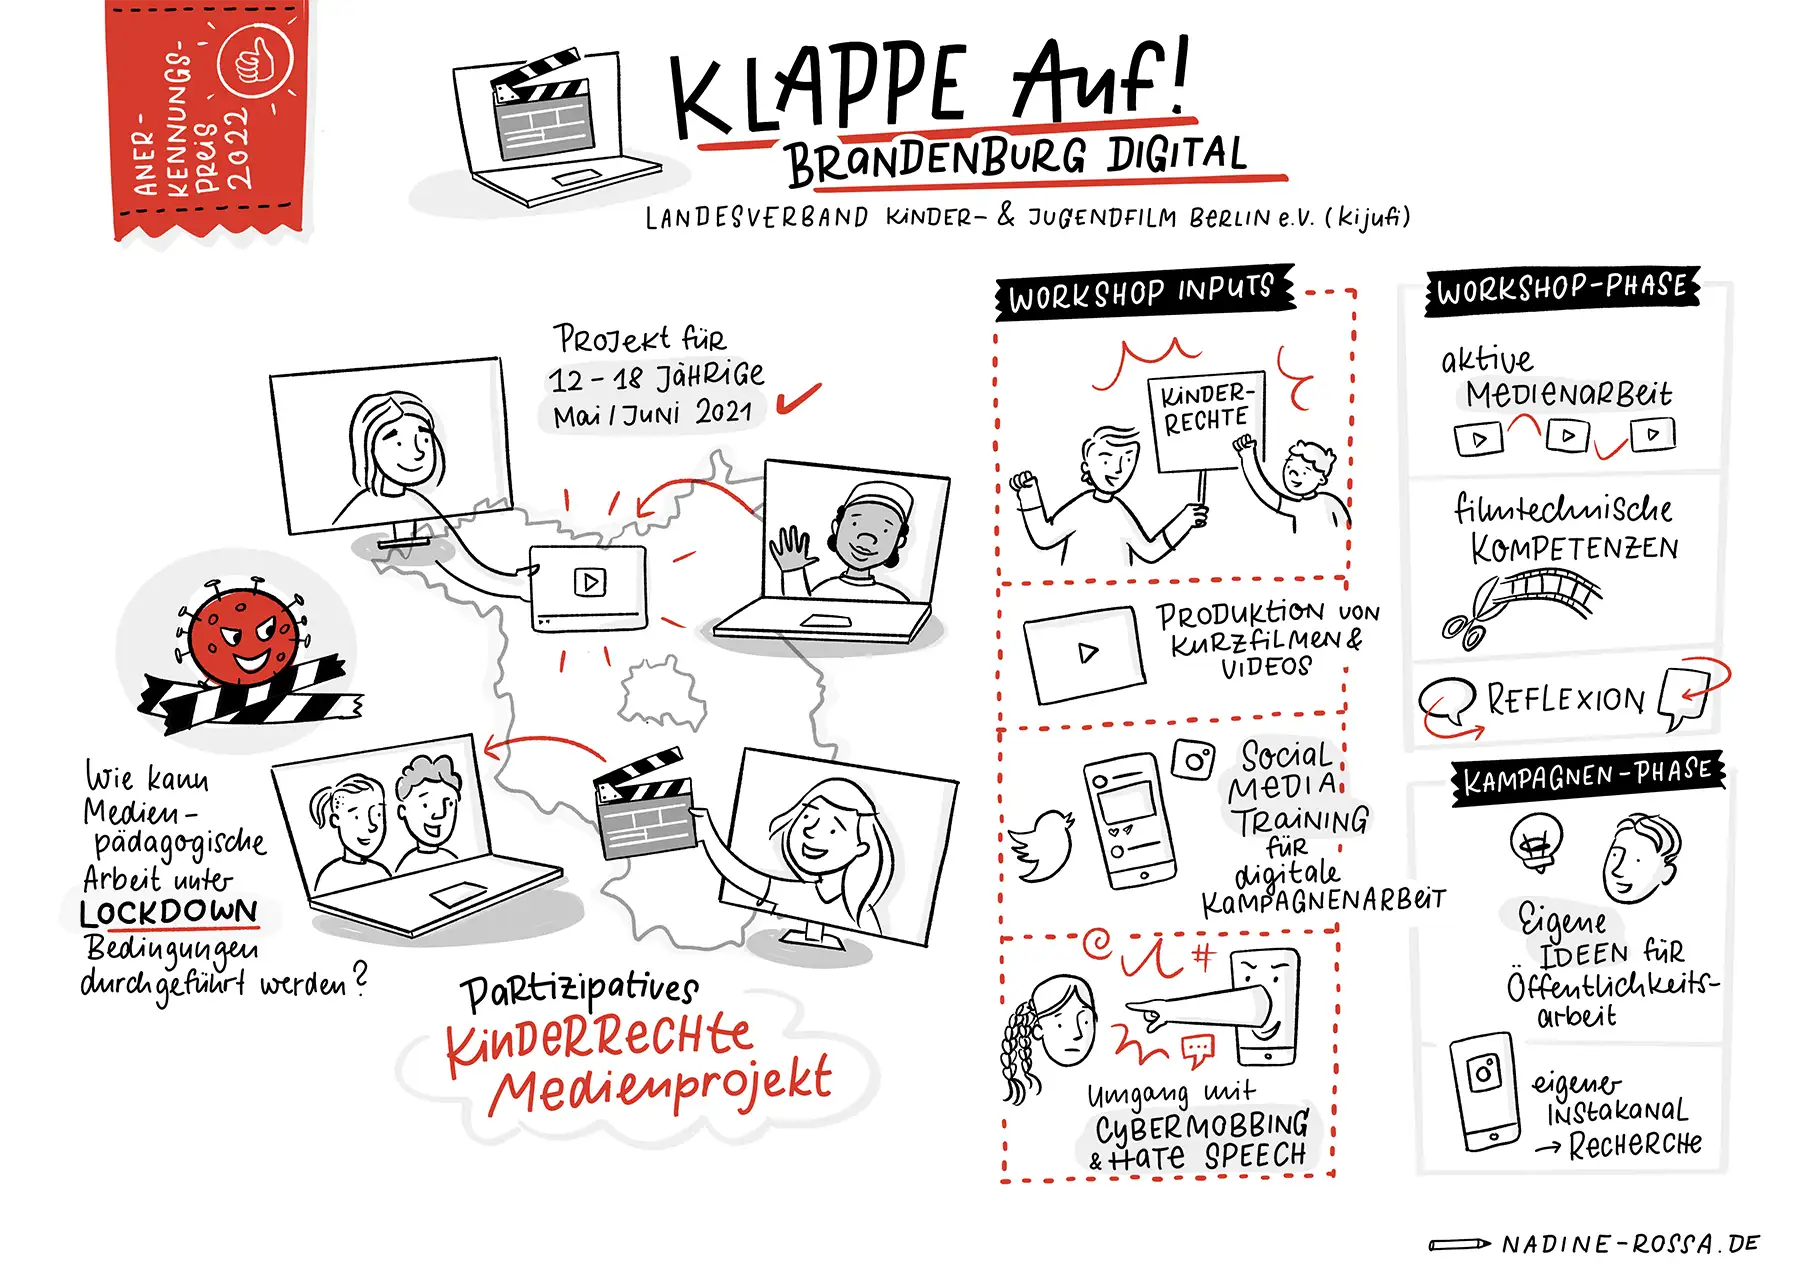 ANER-
KENNUNGS-
PREIS
2022
KLAPPE AUF!
BRANDENBURG DIGITAL
LANDESVERBAND KINDER- & JUGENDFILM BERLIN e.V. (kijufi)
PROJEKT für
12 - 18 JÄHRIGE
Mai / JUNI 2021
Wie kann
Medien-
pädagogische
Arbeit unter
LOCKDOWN
Bedingungen
durchgeführt werden?
PARTIZIPATIVES
KINDERRECHTE
Medienprojekt
WORKSHOP INPUTS
KINDER-
RECHTE
PRODUKTION VON
KURZFILMEN &
VIDEOS
SOCIAL
MEDIA
TRAINING
für
digitale
KAMPAGNENARBEIT
#
Umgang mit
CYBERMOBBING
& HATE SPEECH
WORKSHOP-PHASE
aktive
MEDIENARBEIT
filmtechnische
KOMPETENZEN
REFLEXION
KAMPAGNEN-PHASE
Eigene
IDEEN für
Öffentlichkeits-
arbeit
eigener
INSTAKANAL
→ RECHERCHE
NADINE-ROSSA.DE